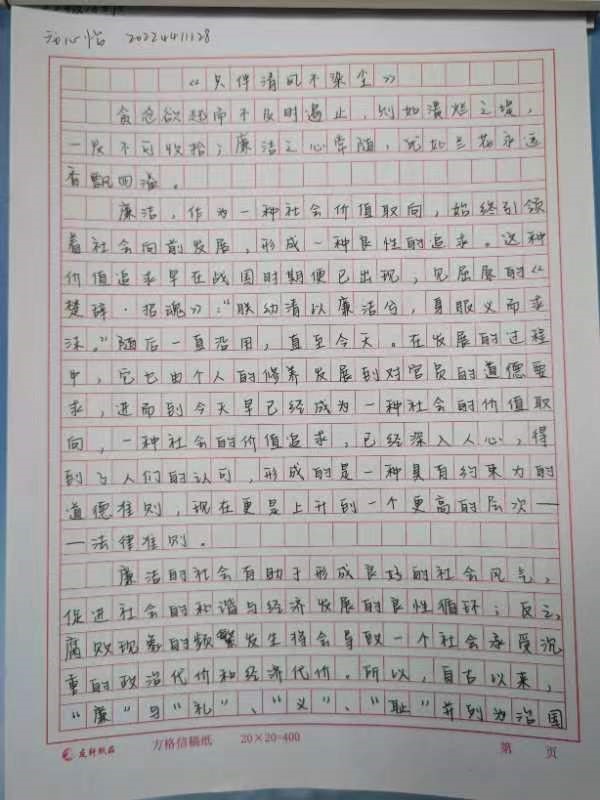 心怡 20224411128
《只伴清风不染尘》
贪念欲起而不及时遏止，则如溃烂之堤，
一发不可收拾；廉洁之心常随，宛如兰花永远
香飘四溢。
廉洁，作为一种社会价值取向，始终引领
着社会向前发展，形成一种良性的追求。这种
价值追求早在战国时期便已出现，见屈原的《
楚辞·招魂》：“朕幼清以廉洁兮，身服义而未
沫。”随后一直沿用，直至今天。在发展的过程
中，它已由个人的修养发展到对官员的道德要
求，进而到今天早已经成为一种社会的价值取
向，一种社会的价值追求，已经深入人心，得
到了人们的认可，形成的是一种具有约束力的
道德准则，现在更是上升到一个更高的层次—
—法律准则。
廉洁的社会有助于形成良好的社会风气，
促进社会的和谐与经济发展的良性循环；反之，
腐败现象的频繁发生将会导致一个社会承受沉
重的政治代价和经济代价。所以，自古以来，
“廉”与“礼”、“义”、“耻”并列为治国
友轩纸品 方格信稿纸 20×20=400 第 页